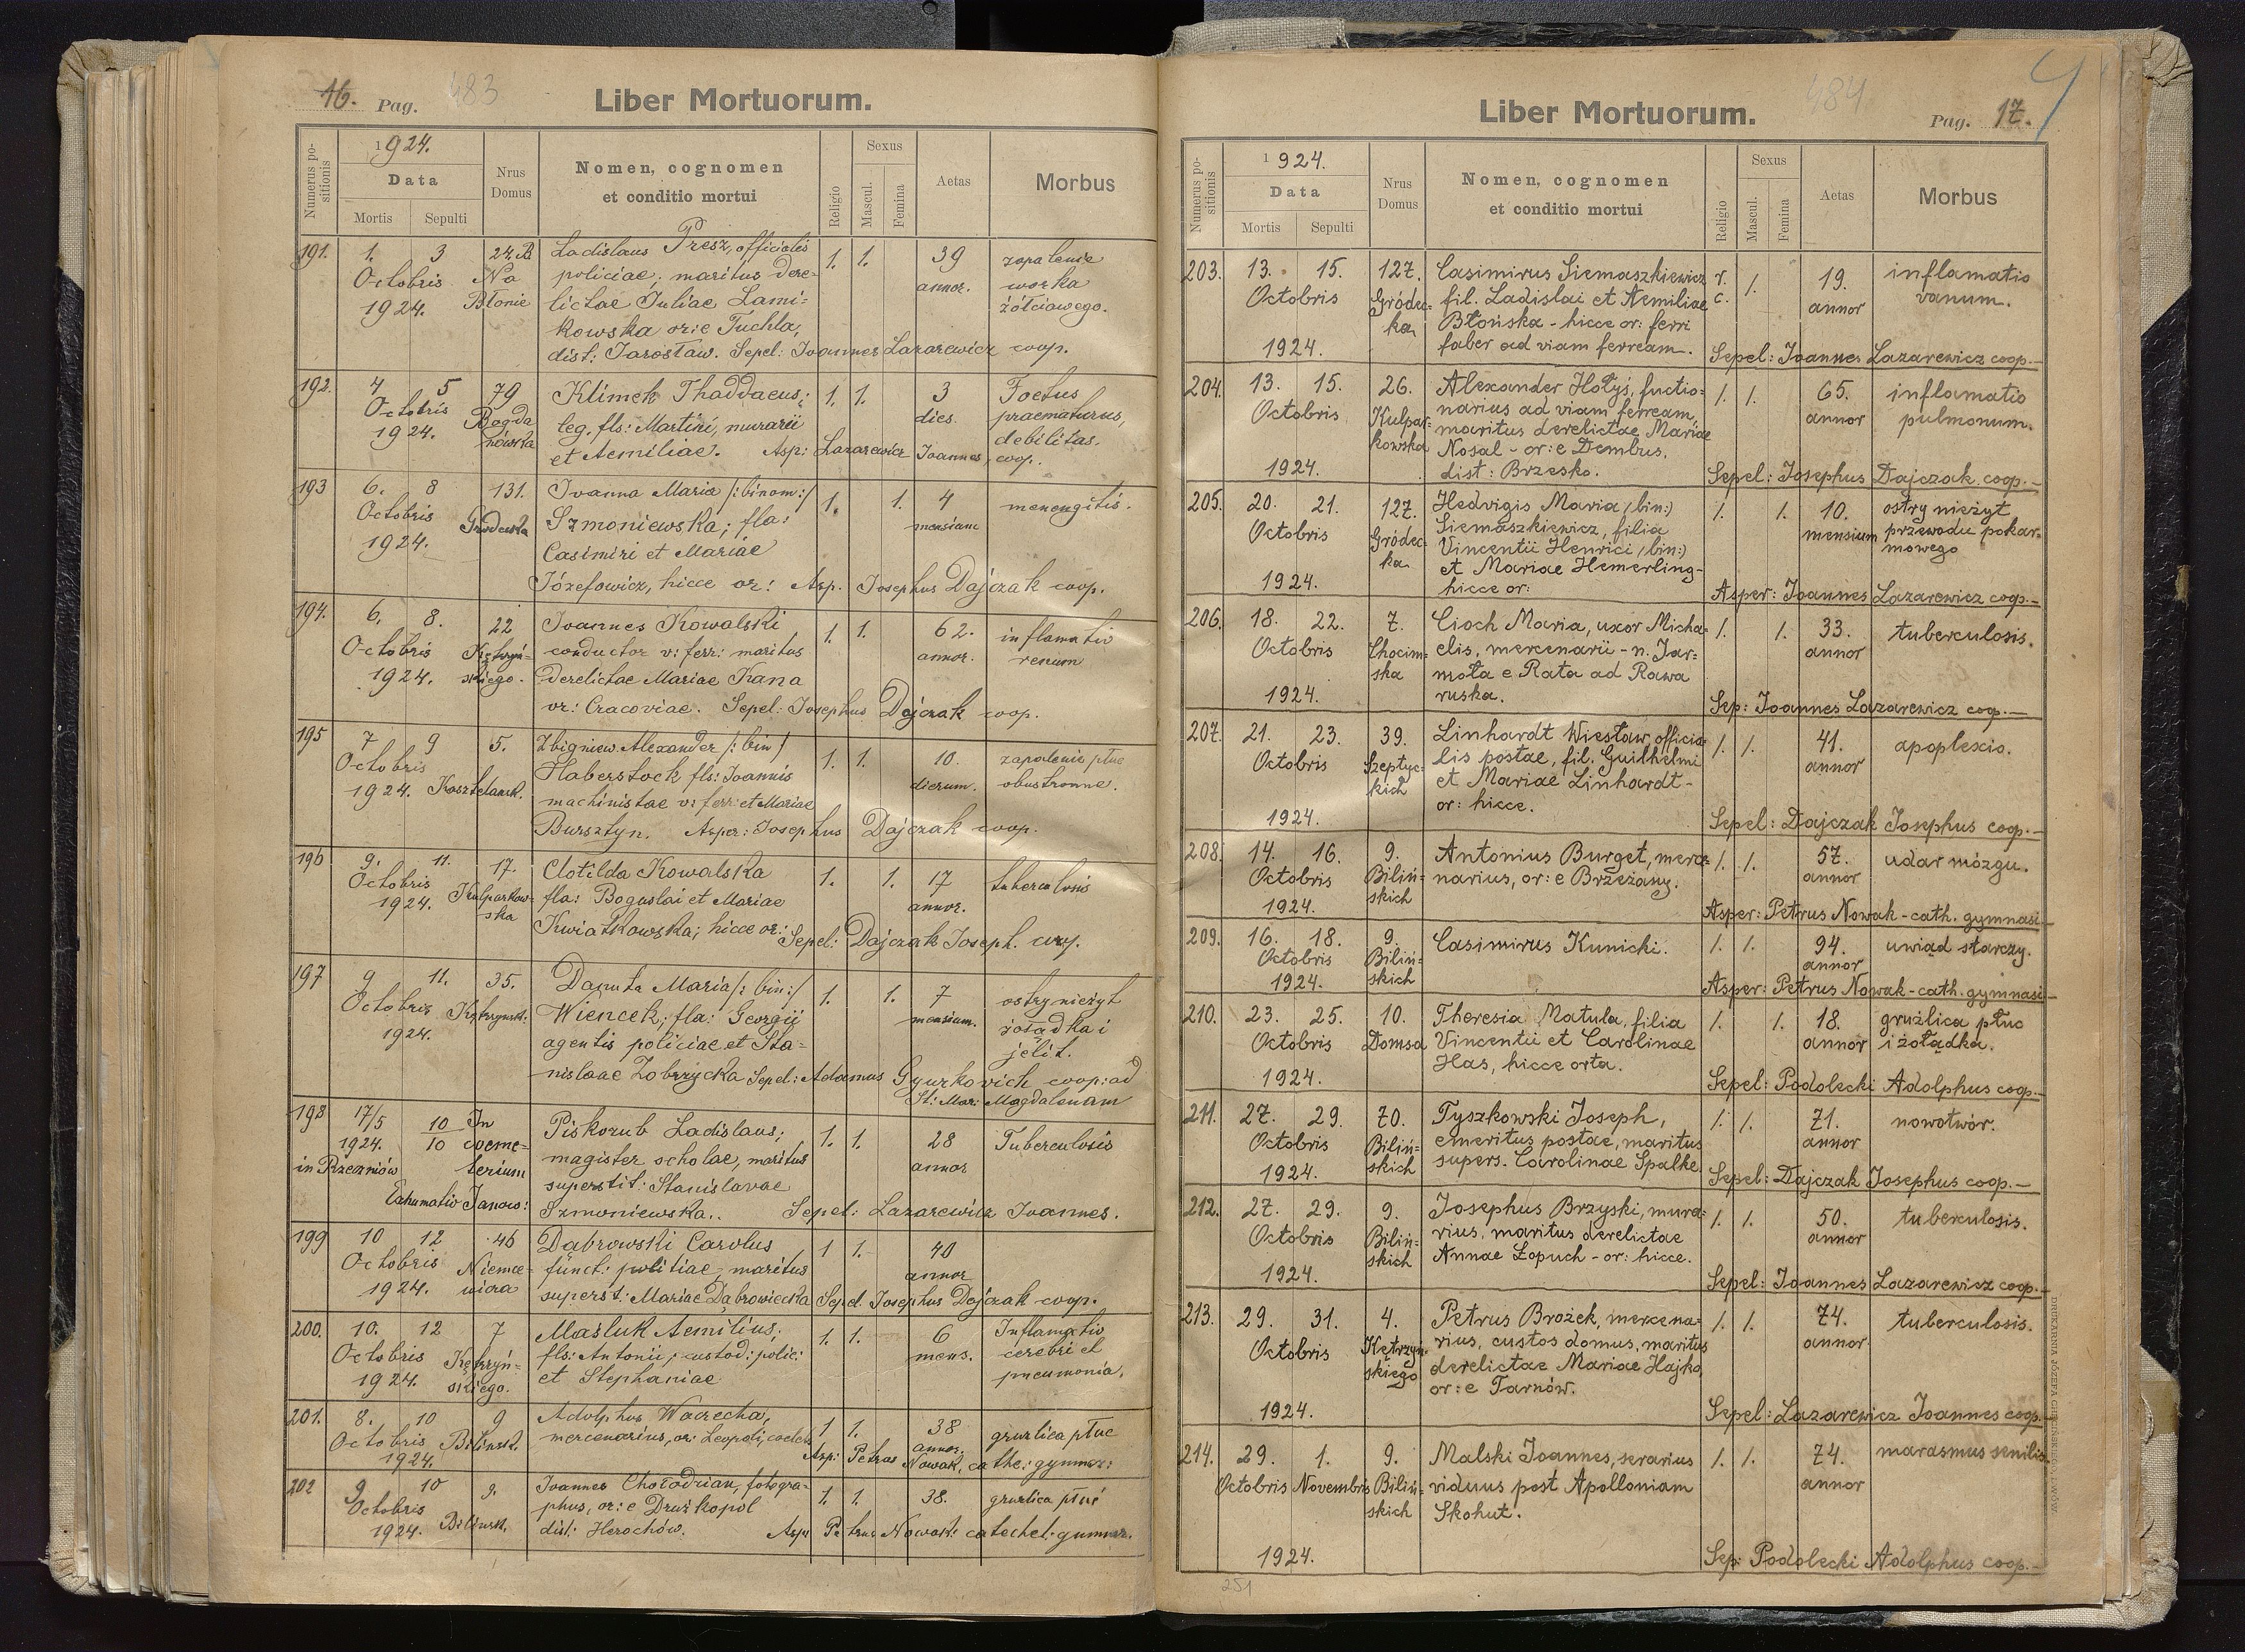 16. Pag. 483
Liber Mortuorum.
Numerus positionis
1924.
Data
Mortis Sepulti
Nrus Domus
Nomen, cognomen
et conditio mortui
Religio
Sexus
Mascul.
Femina
Aetas
Morbus
191. 1. 3 24. Ladislaus Presz, officialis 1. 1. 39 zapalenie
Octobris Na policiae, maritus dere- annor. worka
1924. Błonie lictae Juliae Lami= żółciowego.
kowska or:e Tuchla,
dist: Jarosław. Sepel: Joannes Lazarewicz coop.
192. 4 5 79 Klimek Thaddaeus; 1. 1. 3 Foetus
Octobris Bogda leg. fls: Martini, murarii dies. praematurus,
1924. nówska et Aemiliae. Asp: Lazarewicz Joannes, coop. debilitas.
193 6. 8 131. Joanna Maria /:binom:/ 1. 1. 4 menengitis.
Octobris Gródecka Szmoniewska; fla: mensium
1924. Casimiri et Mariae
Józefowicz, hicce or: Asp. Josephus Dajczak coop.
194. 6. 8. 22 Joannes Kowalski 1. 1. 62. inflamatio
Octobris Kętrzyń= conductor v: ferr: maritus annor. renum
1924. skiego. derelictae Mariae Kana
or: Cracoviae. Sepel: Josephus Dajczak coop.
195 7 9 5. Zbigniew Alexander /:bin/ 1. 1. 10. zapalenie płuc
Octobris Haberstock fls: Joannis dierum. obustronne.
1924. Kasztelansk. machinistae v: ferr: et Mariae
Bursztyn. Asper: Josephus Dajczak coop.
196 9. 11. 17. Clotilda Kowalska 1. 1. 17 tuberculosis
Octobris Kulparkow- fla: Boguslai et Mariae annor.
1924. ska Kwiatkowska; hicce or: Sepel: Dajczak Joseph. coop.
197 9 11. 35. Danuta Maria /:bin:/ 1. 1. 7 ostry nieżyt
Octobris Kętrzynsk: Wiencek; fla: Georgii mensium. żołądka i
1924. agentis policiae et Sta= jelit.
nislaae Zobrzycka Sepel: Adamus Gyurkovich coop: ad
St: Mar: Magdalenam
198 17/5 10 In Piskozub Ladislaus; 1. 1. 28 Tuberculosis
1924. 10 coeme= magister scholae, maritus annor
in Rzeczniów terium superstit: Stanislavae
Exhumatio Janow: Szmoniewska.. Sepel: Lazarewicz Joannes.
199 10 12 46 Dąbrowski Carolus 1 1. 40
Octobris Niemce= funct: politiae, maritus annor
1924. wicza superst: Mariae Dąbrowiecka Sepel. Josephus Dajczak coop.
200. 10. 12 7 Maśluk Aemilius; 1. 1. 6 Inflamatio
Octobris Kętrzyń- fls: Antonii, custod: polic: mens. cerebri et
1924. skiego. et Stephaniae pneumonia.
201. 8. 10 9 Adolphus Wacrecha, 1 1. 38 gruzlica płuc
Octobris Bilinsk. mercenarius, or: Leopoli, annor.
1924. Asp: Petrus Nowak, cathe: gymnaz:
202 9 10 9. Joannes Chołodrian, fotogra= 1. 1. 38. gruzlica płuc
Octobris Bilinsk. phus, or:e Drużkopol
1924. dist: Horochów. Asp: Petrus Nowak catechet: gymnaz.
Liber Mortuorum.
484
Pag. 17.
Numerus positionis
1924.
Data
Mortis Sepulti
Nrus Domus
Nomen, cognomen
et conditio mortui
Religio
Sexus
Mascul.
Femina
Aetas
Morbus
203. 13. 15. 127. Casimirus Siemaszkiewicz r. 1. 19. inflamatio
Octobris Gródec= fil. Ladislai et Aemiliae c. annor vanum.
ka Błońska - hicce or: ferri
1924. faber ad viam ferream. Sepel: Joannes Lazarewicz coop.-
204. 13. 15. 26. Alexander Hołyś, fuctio= 1. 1. 65. inflamatio
Octobris Kulpar= narius ad viam ferream, annor pulmonum.
kowska maritus derelictae Mariae
Nosal - or:e Dembus.
1924. dist: Brzesko. Sepel: Josephus Dajczak coop.-
205. 20. 21. 127. Hedvigis Maria /bin:) 1. 1. 10. ostry nieżyt
Octobris Gródec= Siemaszkiewicz, filia mensium przewodu pokar=
ka Vincentii Henrici /bin:) mowego
et Mariae Hemerling-
1924. hicce or: Asper: Joannes Lazarewicz coop.-
206. 18. 22. 7. Cioch Maria, uxor Micha= 1. 1. 33. tuberculosis.
Octobris Chocim= elis, mercenarii - n. Jar= annor
ska mota e Rata ad Rawa
1924. ruska. Sep: Joannes Lazarewicz coop.-
207. 21. 23. 39. Linhardt Wiesław, officia= 1. 1. 41. apoplexio.
Octobris Szeptyc= lis postae, fil. Guilhelmi annor
kich et Mariae Linhardt-
or: hicce.
1924. Sepel: Dajczak Josephus coop.-
208. 14. 16. 9. Antonius Burget, merce= 1. 1. 57. udar mózgu.
Octobris Biliń= narius, or:e Brzeżany. annor
1924. skich Asper: Petrus Nowak - cath. gymnasi.-
209. 16. 18. 9. Casimirus Kunicki. 1. 1. 94. uwiąd starczy.
Octobris Biliń= annor
1924. skich Asper: Petrus Nowak - cath. gymnasi.-
210. 23. 25. 10. Theresia Matula, filia 1. 1. 18. gruźlica płuc
Octobris Domsa Vincentii et Carolinae annor i żołądka.
1924. Has, hicce orta. Sepel: Podolecki Adolphus coop.-
211. 27. 29. 70. Tyszkowski Joseph, 1. 1. 71. nowotwór.
Octobris Biliń= emeritus postae, maritus annor
1924. skich supers. Carolinae Spalke Sepel: Dajczak Josephus coop.-
212. 27. 29. 9. Josephus Brzyski, mura= 1. 1. 50. tuberculosis.
Octobris Biliń= rius, maritus derelictae annor
1924. skich Annae Łopuch - or: hicce. Sepel: Joannes Lazarewicz coop.-
213. 29. 31. 4. Petrus Brożek, mercena= 1. 1. 74. tuberculosis.
Octobris Kętrzyń= rius, custos domus, maritus annor
skiego derelictae Mariae Hajko,
or:e Tarnów.
1924. Sepel: Lazarewicz Joannes coop.-
214. 29. 1. 9. Malski Joannes, serarius 1. 1. 74. marasmus senilis.
Octobris Novembris Biliń= viduus post Apolloniam annor
skich Skohut.
1924. Sep: Podolecki Adolphus coop.-
251